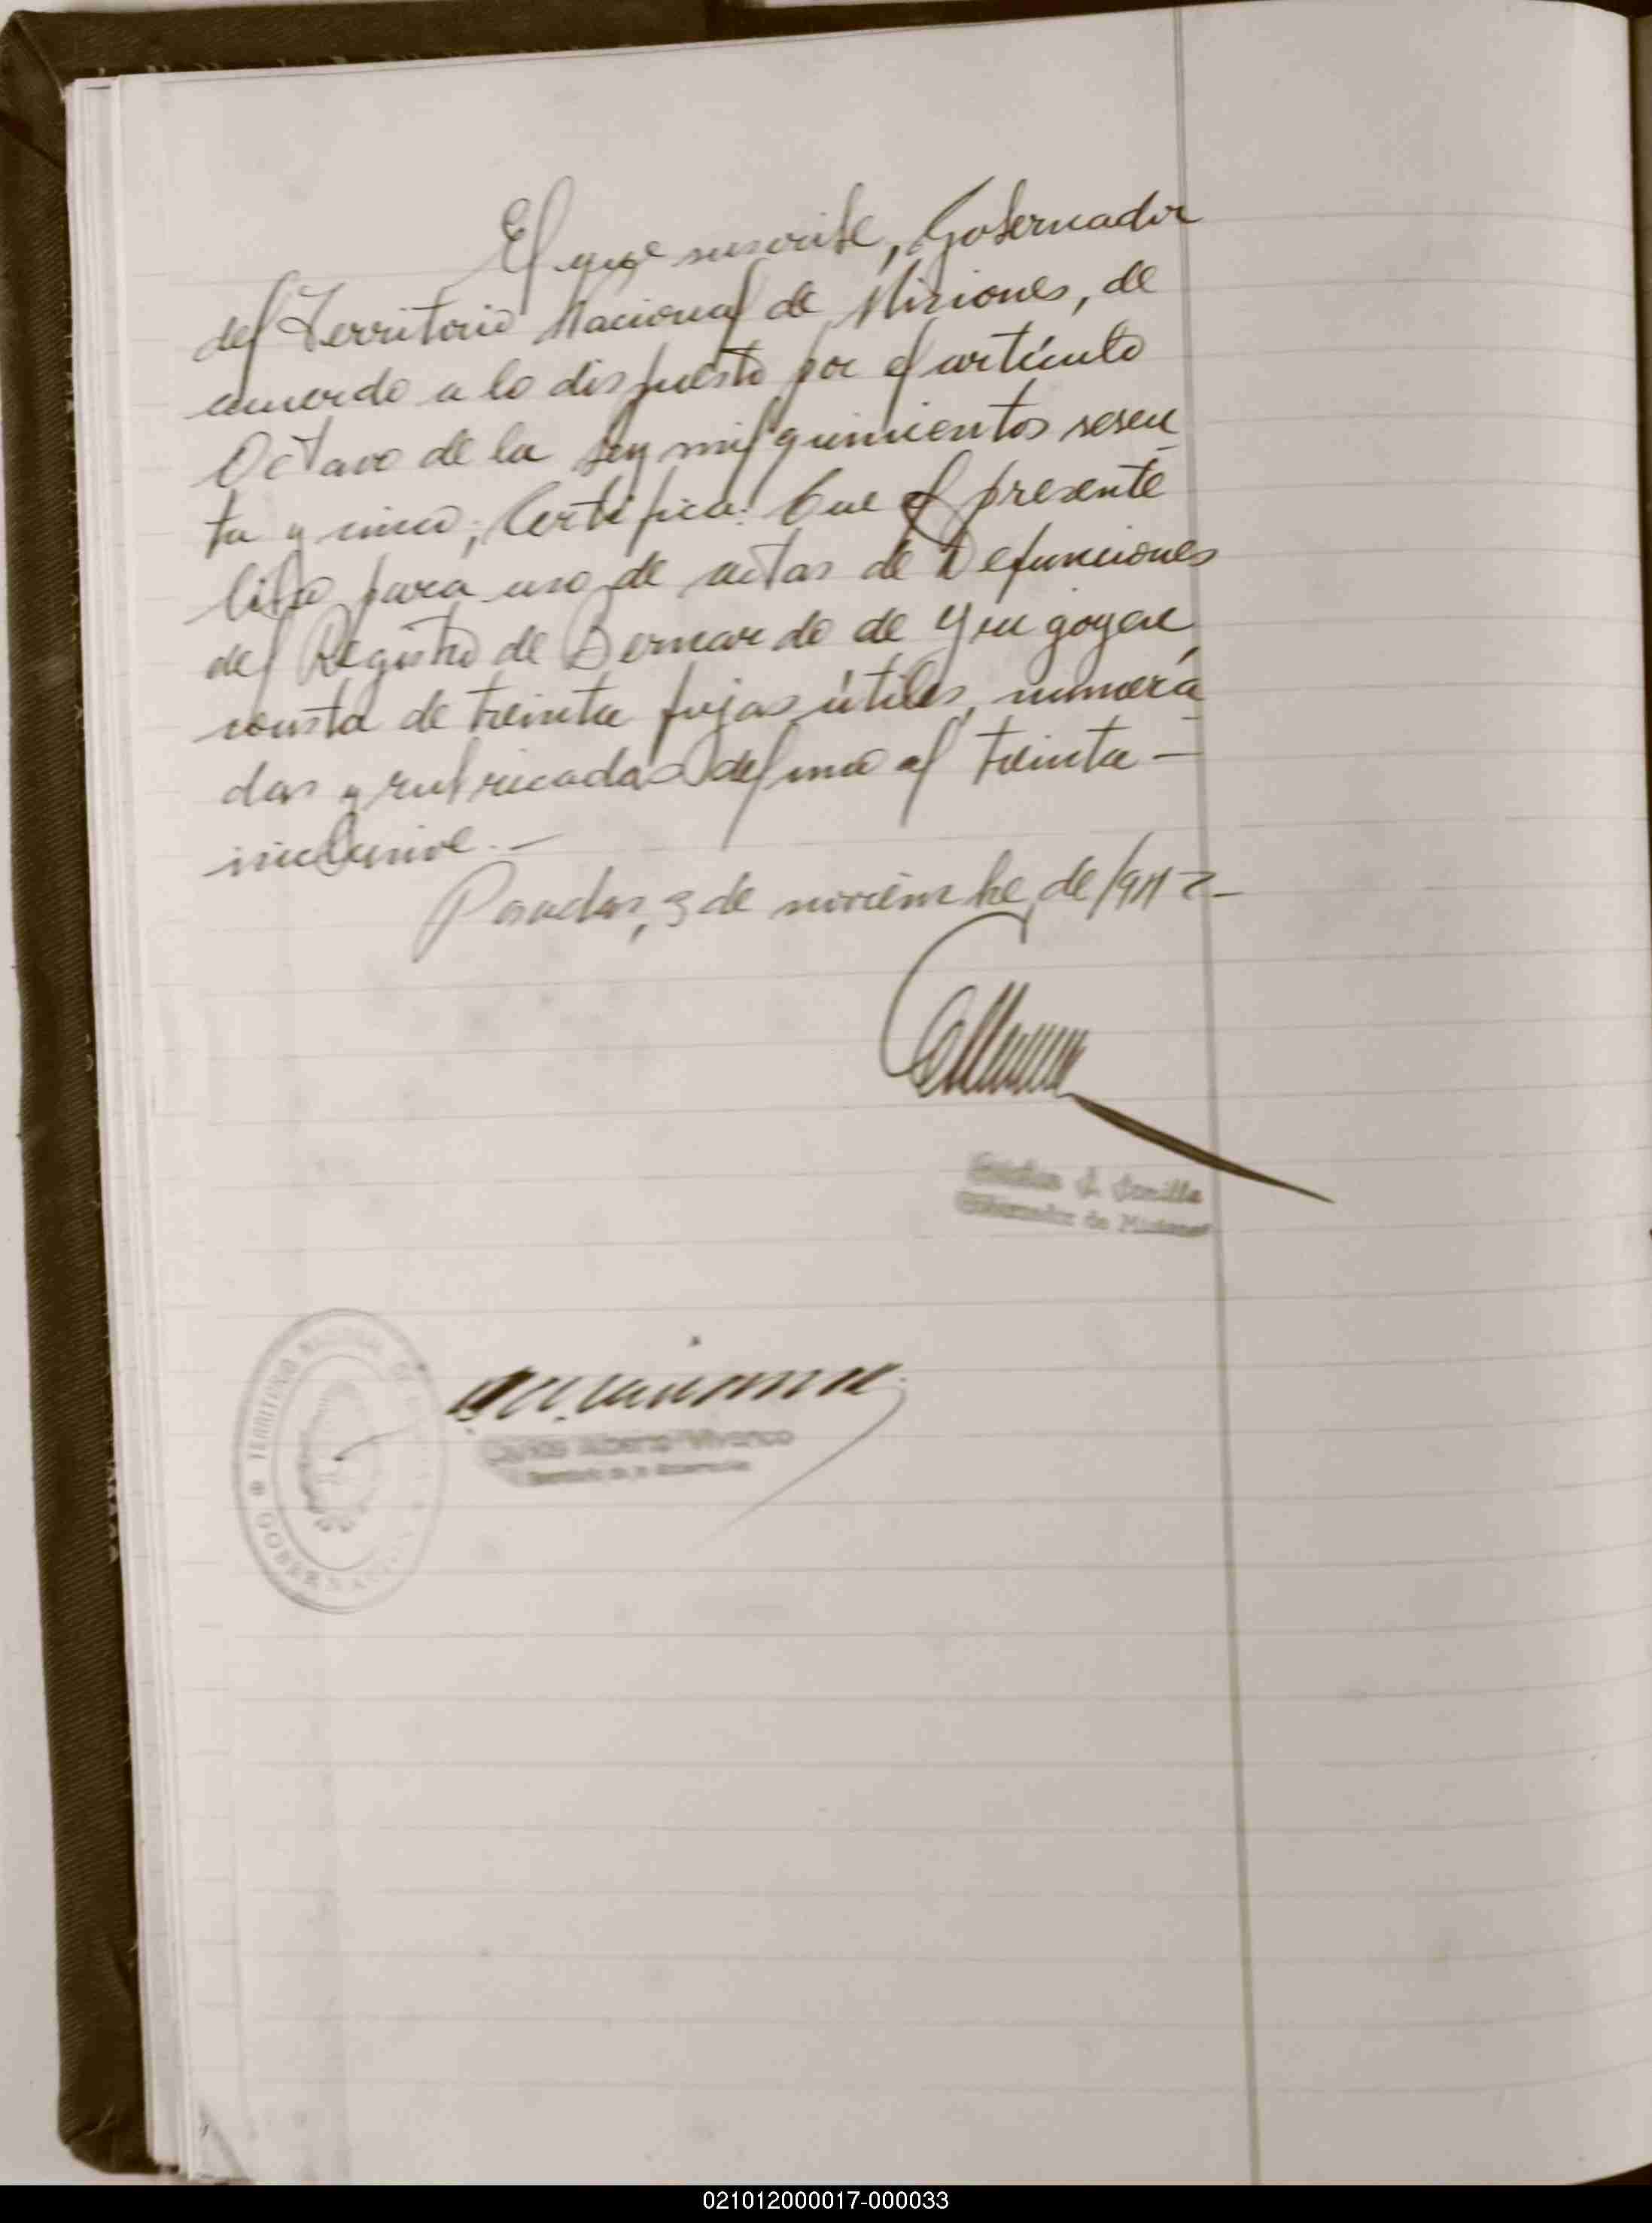 El que suscribe, Gobernador
del Territorio Nacional de Misiones, de
acuerdo a lo dispuesto por el artículo
Octavo de la Ley mil quinientos sesen
ta y cinco, Certifica: Que el presente
libro para uso de actas de Defunciones
del Registro de Bernardo de Yrigoyen,
consta de treinta fojas útiles, numera
das y rubricadas del uno al treinta —
inclusive. —
Posadas, 3 de noviembre de
Gobernador de Misiones
TERRITORIO NACIONAL DE
GOBERNACION
Carlos Alberto Vivanco
Secretario de la Gobernación
021012000017-000033